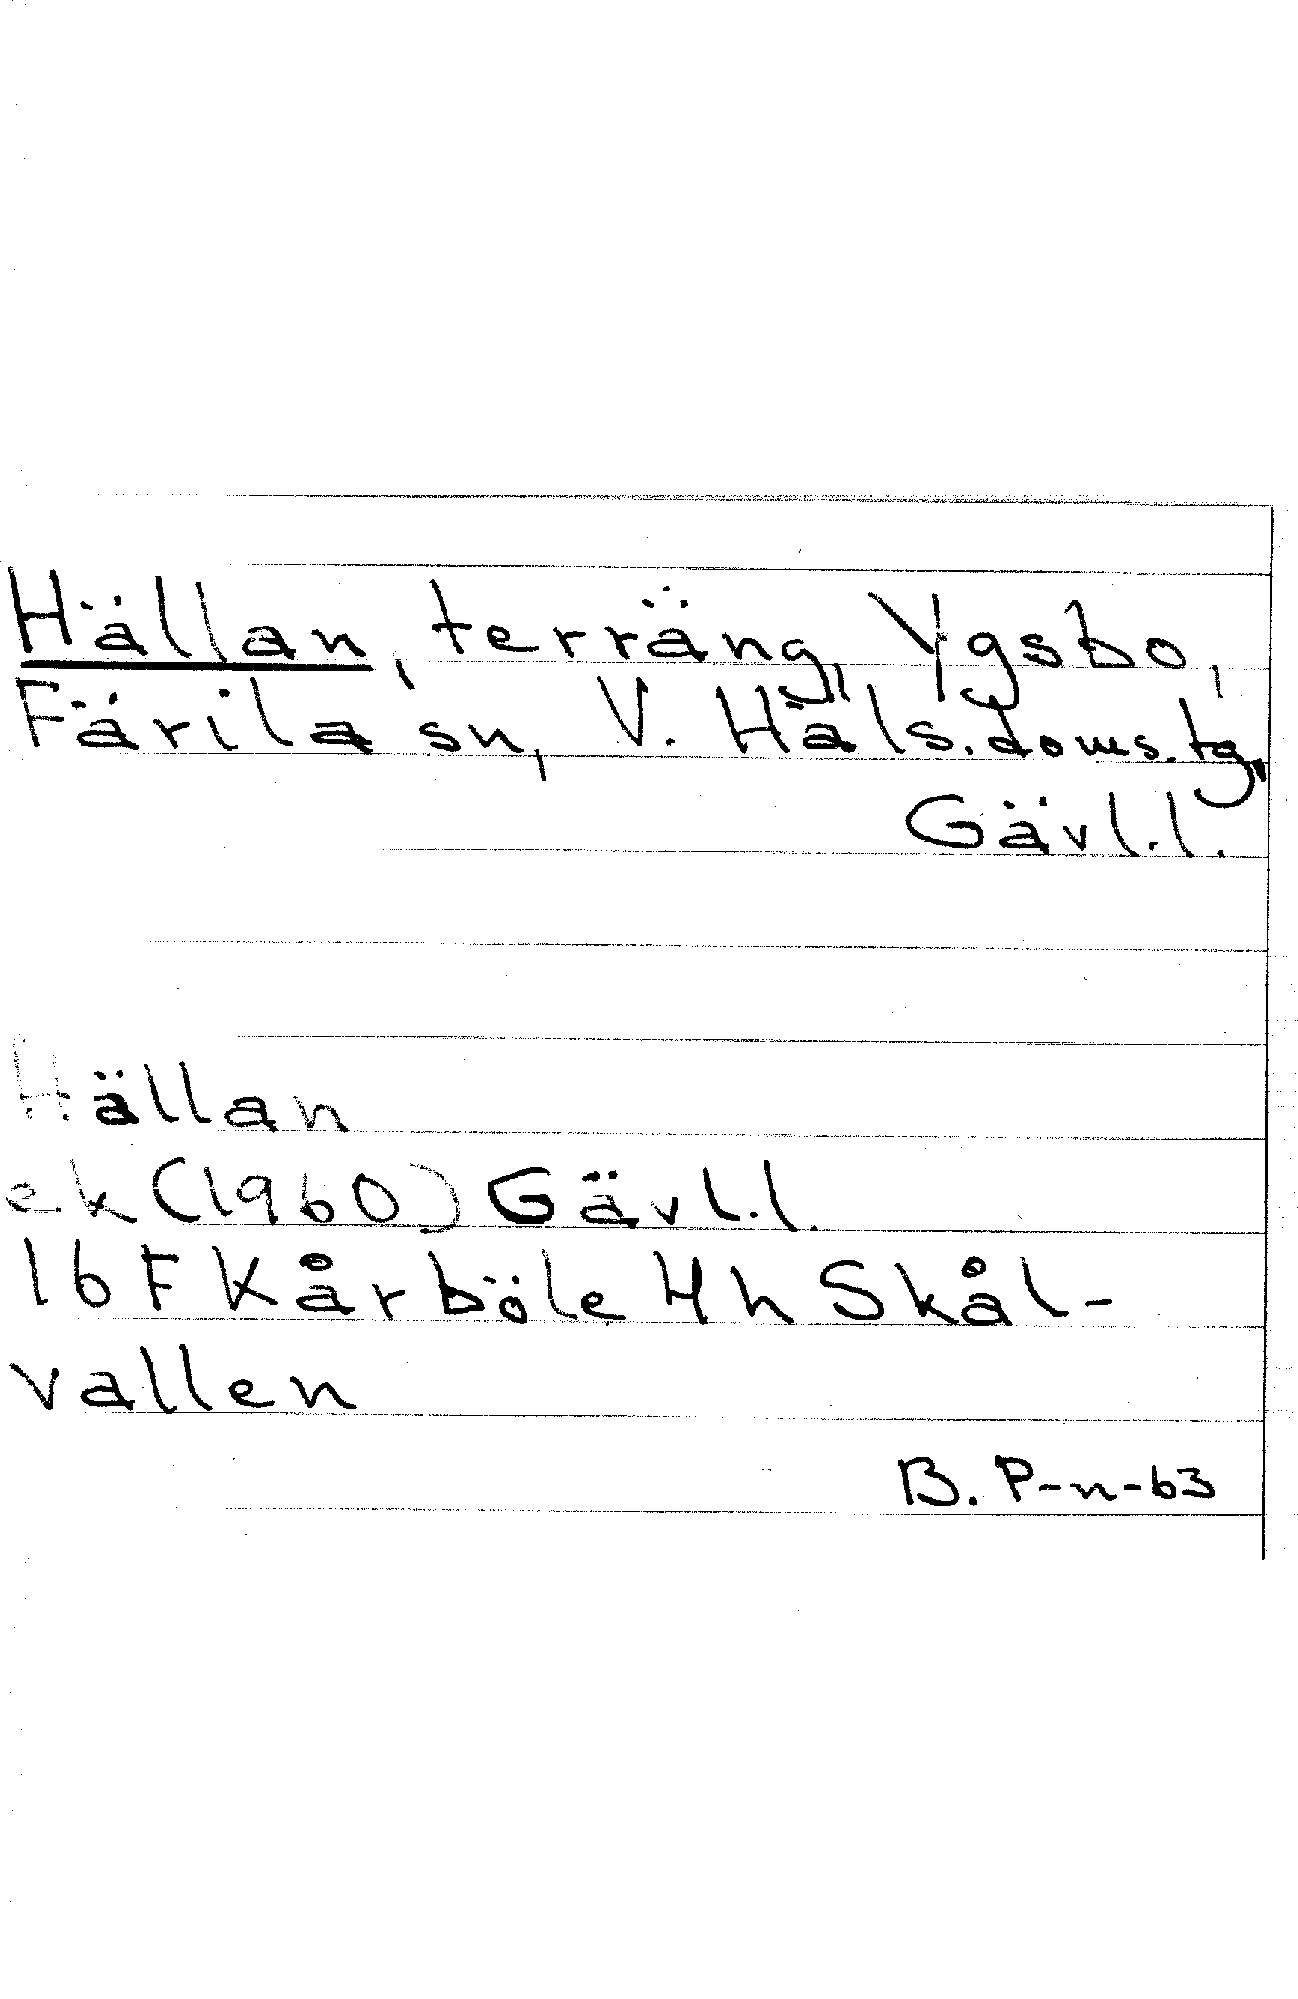 Hällan, terräng, Ygsbo,
Färila sn, V. Häls.doms.tg,
Gävl.l.
Hällan
ek (1960) Gävl.l.
16 F Kårböle 4 h Skål-
vallen
B. P-n-63